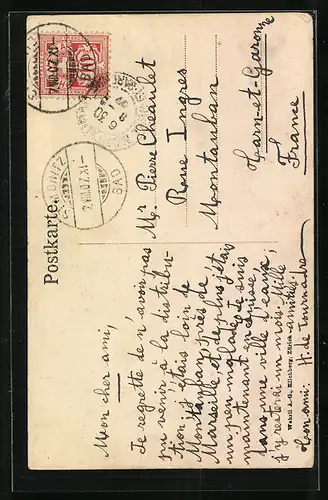 Postkarte.
Mon cher ami,
Je regrette de n'avoir pas
pu venir à la distribu-
tion, j'étais loin de
Montauban, près de
Marseille et, de plus j'étais
un peu malade. Je suis
maintenant en Suisse,
dans une ville d'eaux;
j'y resterai un mois. Mille
amitiés.
Ton ami: H. de
Mr Pierre Cheaulet
Rue Ingres
Montauban
Tarn-et-Garonne
France
Wehrli A.-G., Kilchberg, Zürich
BAD
7.VIII.07.XI-